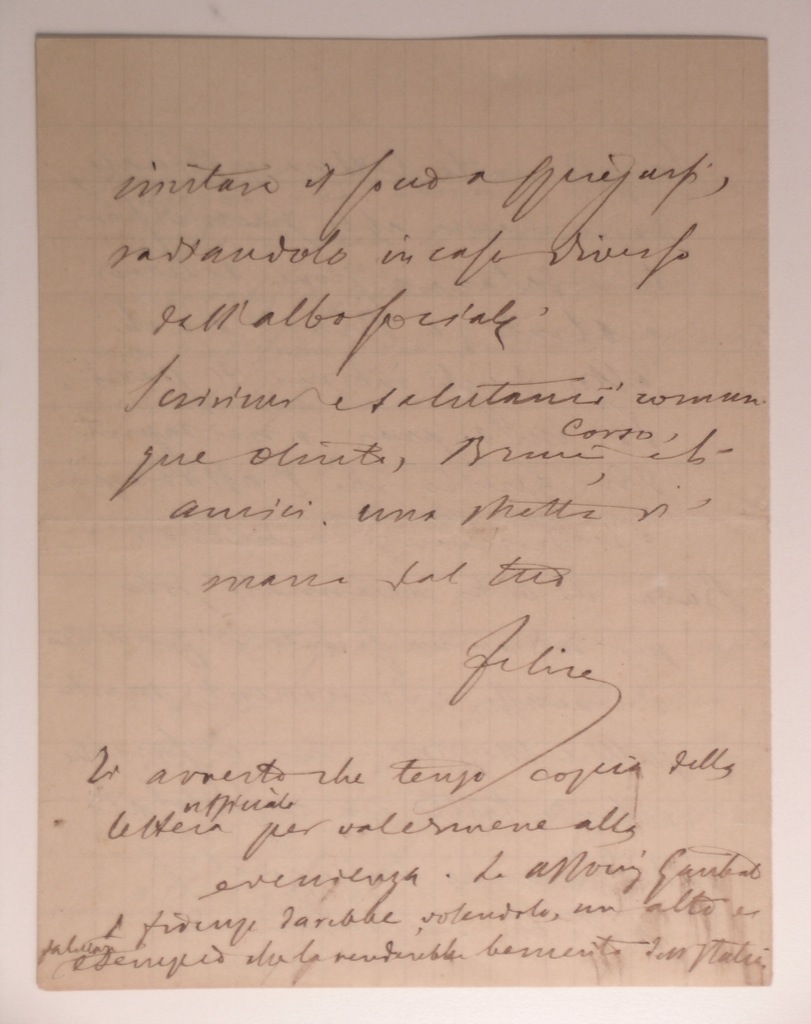 invitare il socio a spiegarsi,
radiandolo in caso diverso
dall'albo sociale
Scrivimi e salutami comun
que Corso,
amici. una stretta di
mano dal tuo
Felice
Ti avverto che tengo copia della
lettera ufficiale per valermene alla
evenienza. La assoc Garibal
di Firenze darebbe, volendolo, un alto e
salutare esempio che la renderebbe benemerita dell'Italia